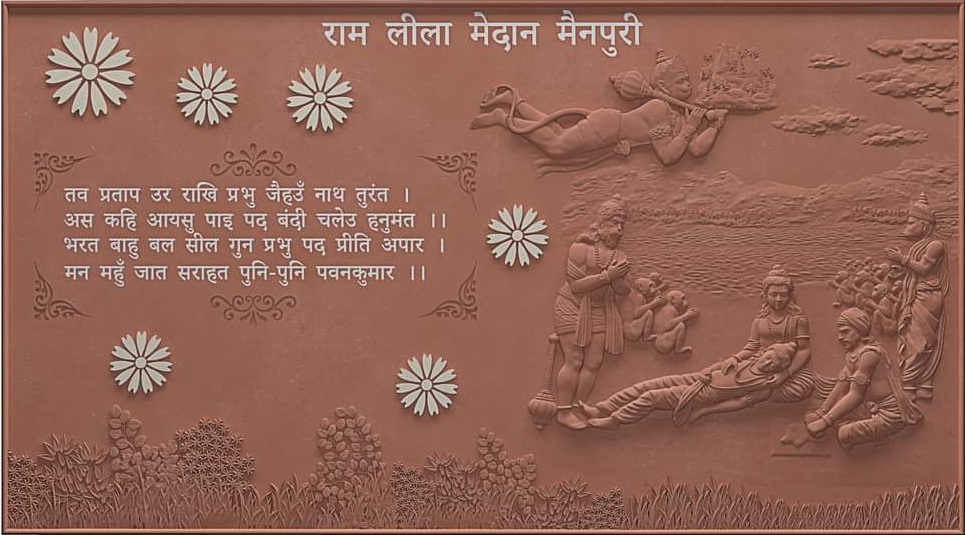 राम लीला मेदान मैनपुरी
तव प्रताप उर राखि प्रभु जैहउँ नाथ तुरंत ।
अस कहि आयसु पाइ पद बंदी चलेउ हनुमंत ।।
भरत बाहु बल सील गुन प्रभु पद प्रीति अपार ।
मन महुँ जात सराहत पुनि-पुनि पवनकुमार ।।